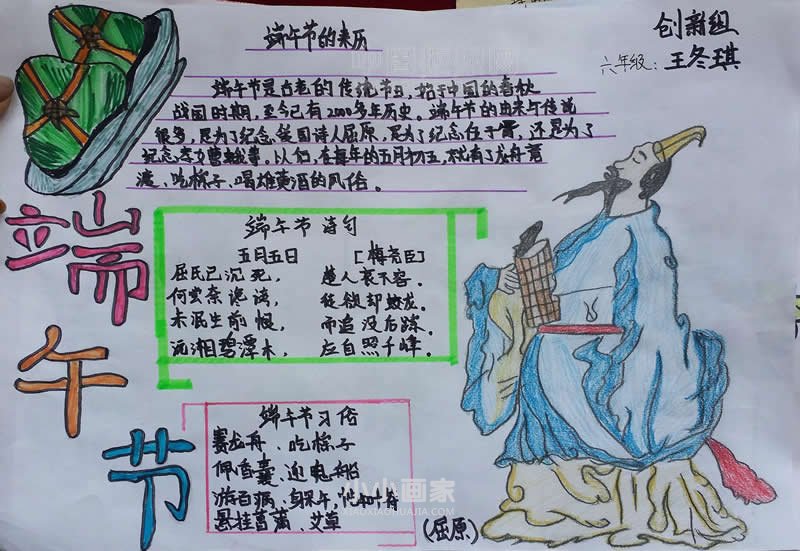 端午节的来历
创新组
六年级：王冬琪
端午节是古老的传统节日，始于中国的春秋
战国时期，至今已有2000多年历史。端午节的由来与传说
很多，是为了纪念爱国诗人屈原，是为了纪念伍子胥，还是为了
纪念孝女曹娥等。以们，在每年的五月初五，就有了龙舟竞
渡、吃棕子、喝雄黄酒的风俗。
端午节
端午节诗句
五月五日 [梅尧臣]
屈氏已沉死， 楚人哀不容。
何尝奈谗谤， 徒欲却蛟龙。
未泯生前恨， 而追没后踪。
沅湘碧潭水， 应自照千峰。
端午节习俗
赛龙舟、吃棕子
佩香囊、迎鬼船
游百病、
悬挂菖蒲、艾草
(屈原)
小小画家
XIAOXIAOHUAJIA.COM